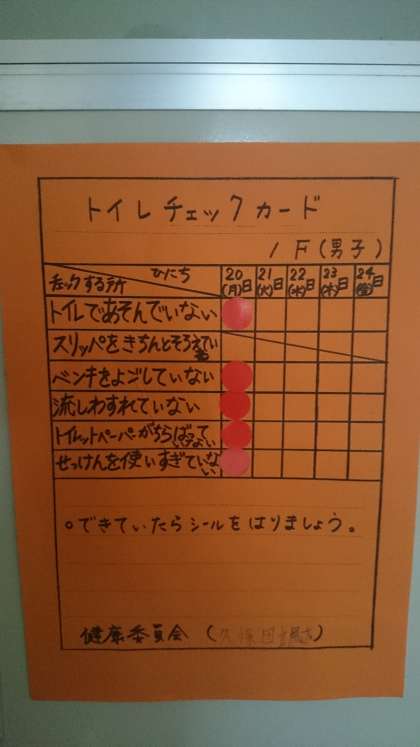 トイレチェックカード
1F(男子)
ひにち
チェックする所
20日(月) 21日(火) 22日(水) 23日(木) 24日(金)
トイレであそんでいない
スリッパをきちんとそろえている
ベンキをよごしていない
流しわすれていない
トイレットペーパーがちらばっていない
せっけんを使いすぎていない
○できていたらシールをはりましょう。
健康委員会(久保田